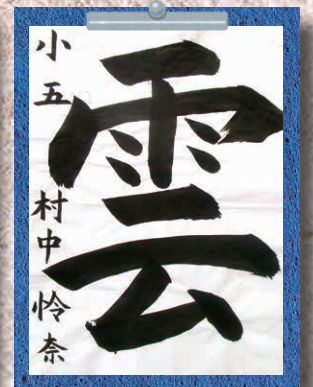 雲
小五 村中怜奈